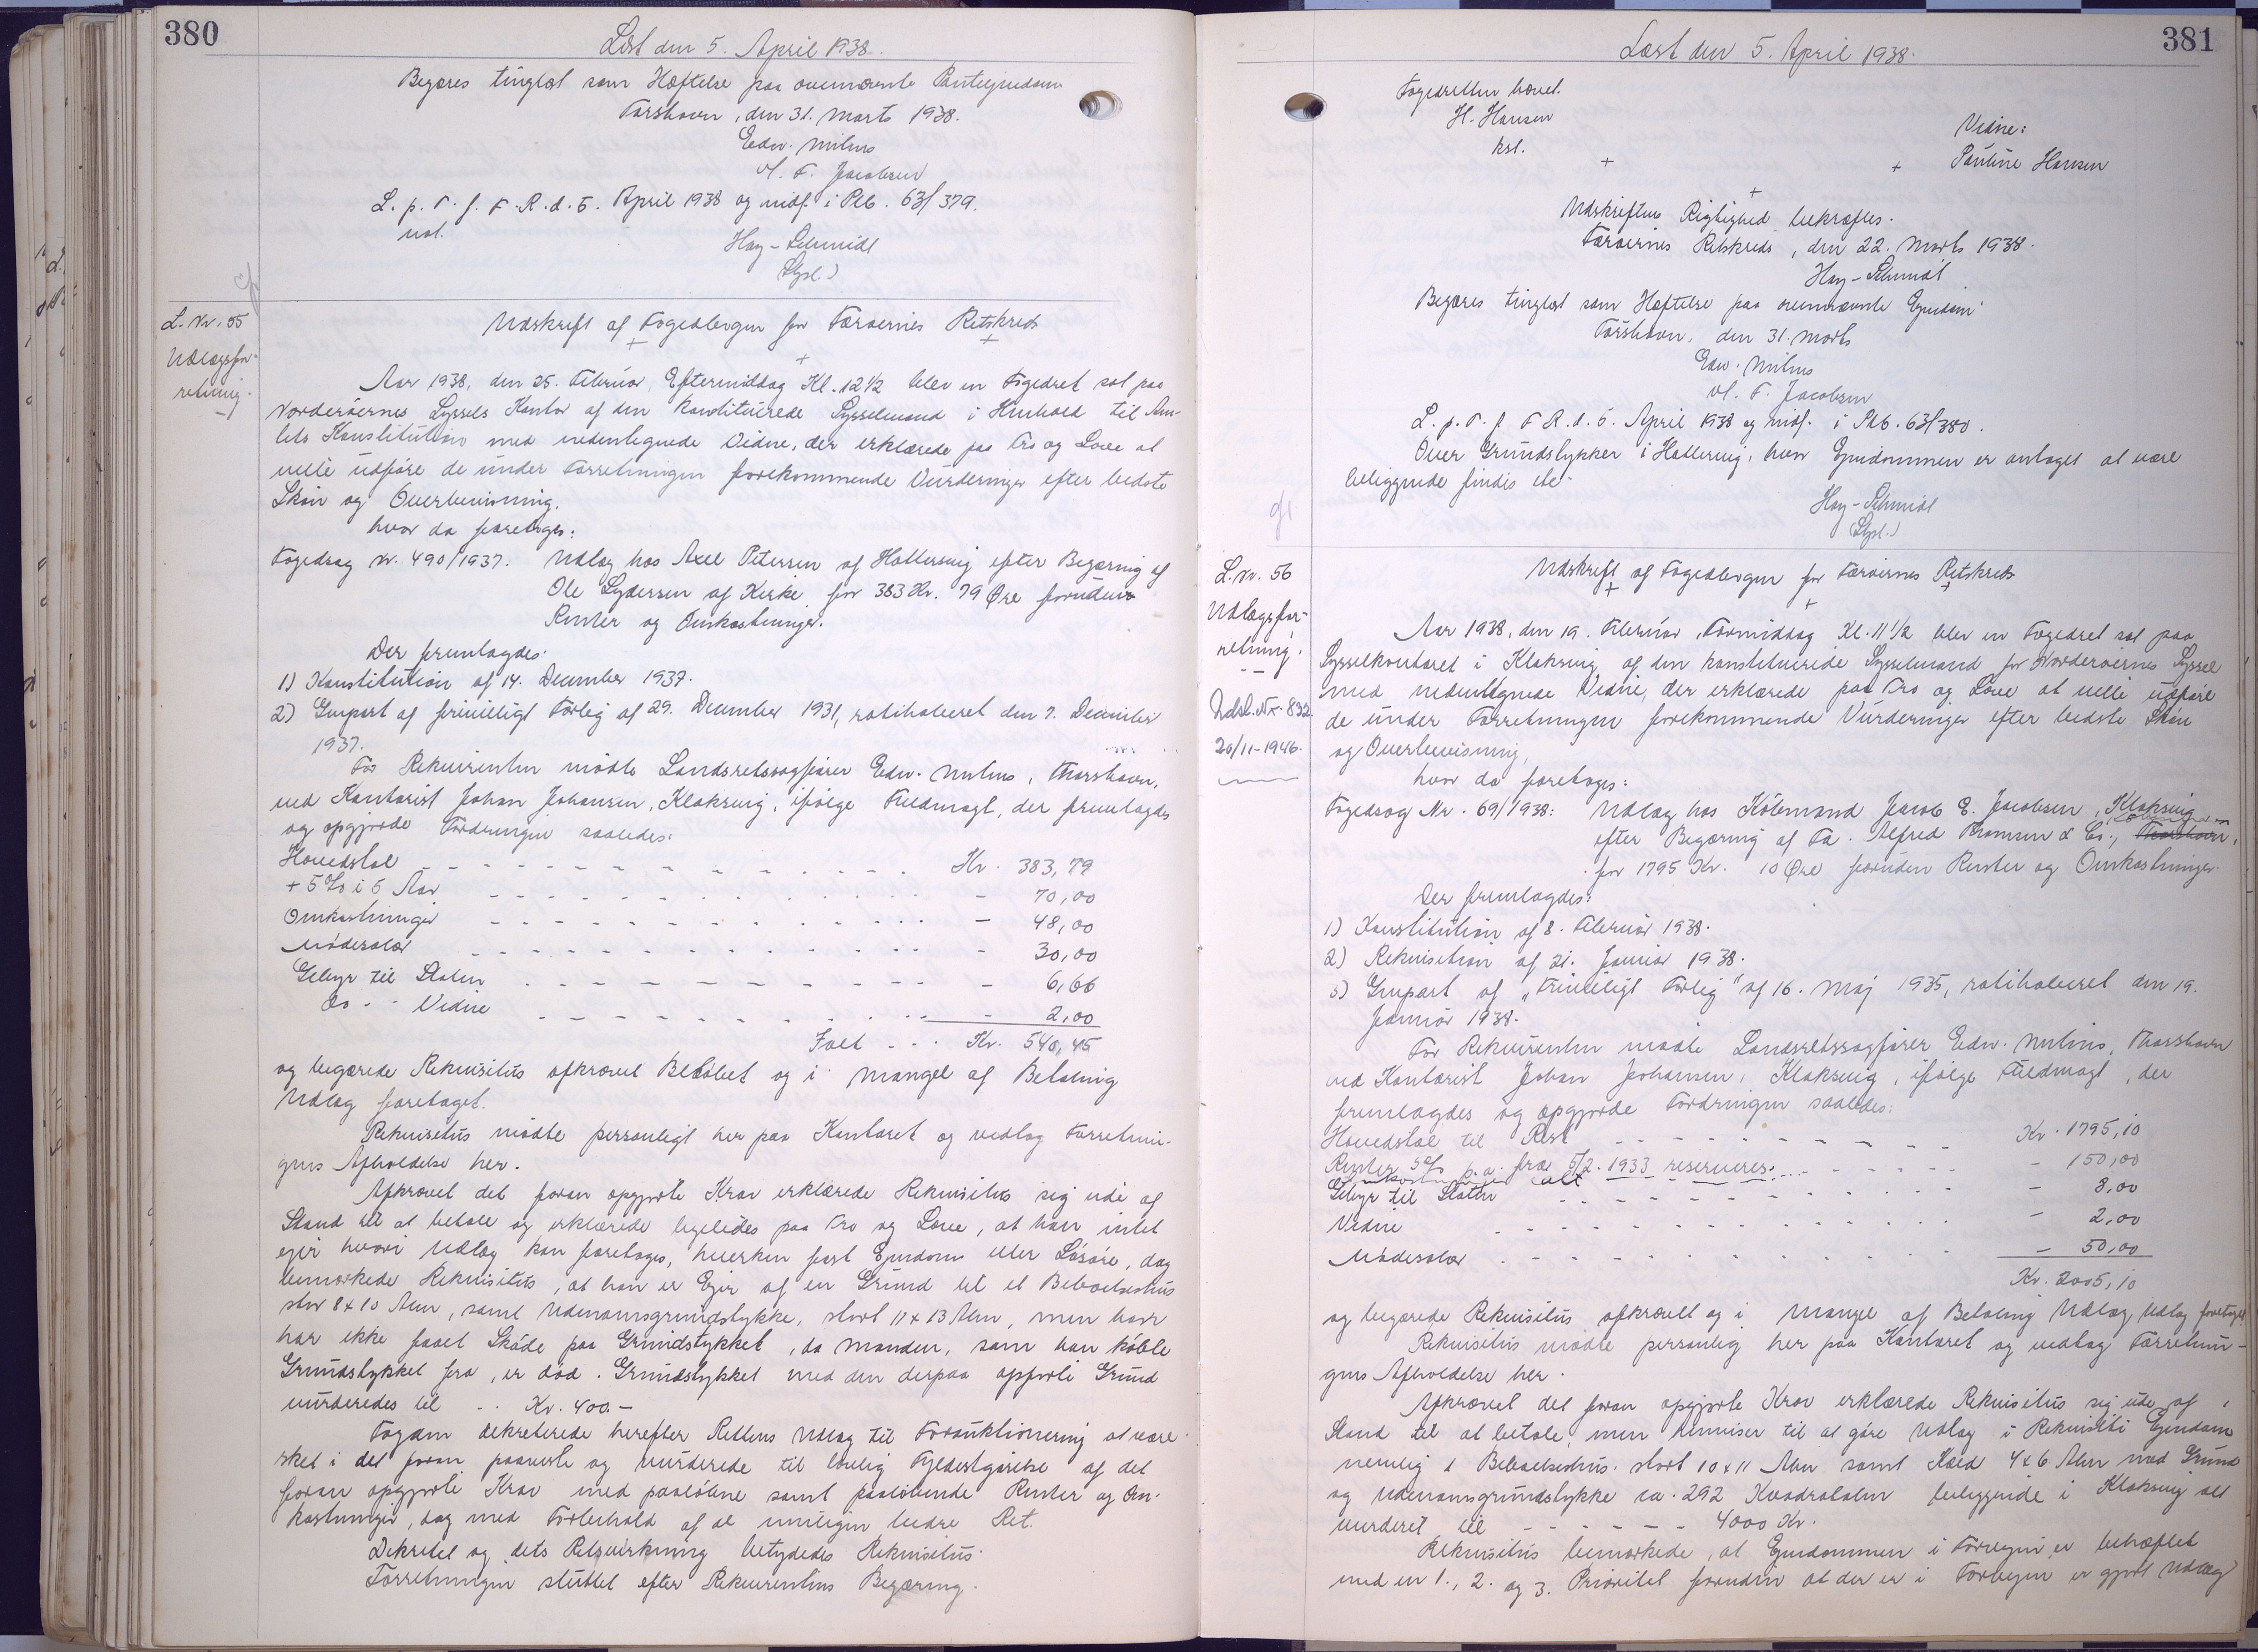 380
Læst den 5. April 1938.
Begæres tinglæst som Hæftelse paa ovennævnte Panteejendom
Torshavn, den 31. Marts 1938.
Edw. Mitens
v/. F. Jacobsen
L. p. T. f. F. R. d. 5. April 1938 og indf. i Ptb. 63/379.
Hay-Schmidt
L. Nr. 55
Udlægsfor-
retning.
Udskrift af Fogedbogen for Færøernes Retskreds
Aar 1938, den 25. Februar, Eftermiddag Kl. 12 1/2 blev en Fogedret sat paa
Norderøernes Syssels Kontor af den konstituerede Sysselmand i Henhold til Am-
tets Konstitution med undertegnede Vidne, der erklærede paa Tro og Love at
ville udføre de under Forretningen forekommende Vurderinger efter bedste
Skøn og Overbevisning,
hvor da foretages:
Fogedsag Nr. 490/1937. Udlæg hos Axel Petersen af Hattervig efter Begæring af
Ole Lydersen af Kirke for 383 Kr. 79 Øre foruden
Renter og Omkostninger.
Der fremlagdes:
1) Konstitution af 14. December 1937.
2) Genpart af frivilligt Forlig af 29. December 1931, ratihaberet den 7. December
1937.
For Rekvirenten mødte Landsretssagfører Edw. Mitens, Thorshavn,
ved Kontorist Johan Johansen, Klaksvig, ifølge Fuldmagt, der fremlagdes
og opgjorde Fordringen saaledes:
Hovedstol - - - Kr. 383,79
+ 5% i 5 Aar - - - 70,00
Omkostninger - - - 48,00
Mødesalær - - - 30,00
Gebyr til Staten - - - 6,66
Do - - Vidne - - - 2,00
Ialt - - - Kr. 540,45
og begærede Rekvisitus afkrævet Beløbet og i Mangel af Betaling
Udlæg foretaget.
Rekvisitus mødte personligt her paa Kontoret og vedtog Forretnin-
gens Afholdelse her.
Afkrævet det foran opgjorte Krav erklærede Rekvisitus sig ude af
Stand til at betale og erklærede ligeledes paa Tro og Love, at han intet
ejer hvori Udlæg kan foretages, hverken fast Ejendom eller Løsøre, dog
bemærkede Rekvisitus, at han er Ejer af en Grund til et Beboelseshus
stor 8 x 10 Alen, samt Udenomsgrundstykke, stort 11 x 13 Alen, men han
har ikke faaet Skøde paa Grundstykket, da Manden, som han købte
Grundstykket fra, er død. Grundstykket med den derpaa opførte Grund
vurderedes til - - Kr. 400.-
Fogden dekreterede herefter Rettens Udlæg til Forauktionering at være
sket i det foran paaviste og vurderede til lovlig Fyldestgørelse af det
foran opgjorte Krav med paaløbne samt paaløbende Renter og Om-
kostninger, dog med Forbehold af al muligen bedre Ret.
Dekretet og dets Retsvirkning betydedes Rekvisitus.
Forretningen sluttet efter Rekvirentens Begæring.
381
Læst den 5. April 1938.
Fogedretten hævet.
H. Hansen
kst.
Vidne:
Pauline Hansen
Udskriftens Rigtighed bekræftes.
Færøernes Retskreds, den 22. Marts 1938.
Hay-Schmidt
Begæres tinglæst som Hæftelse paa ovennævnte Ejendom
Torshavn, den 31. Marts
Edw. Mitens
v/. F. Jacobsen
L. p. T. f. F. R. d. 5. April 1938 og indf. i Ptb. 63/380.
Over Grundstykker i Hattervig, hvor Ejendommen er antaget at være
beliggende findes ikke
Hay-Schmidt
L. Nr. 56
Udlægsfor-
retning.
Udsl. Nr. 832
20/11-1946.
Udskrift af Fogedbogen for Færøernes Retskreds
Aar 1938, den 19. Februar, Formiddag Kl. 11 1/2 blev en Fogedret sat paa
Sysselkontoret i Klaksvig af den konstituerede Sysselmand for Norderøernes Syssel
med undertegnede Vidne, der erklærede paa Tro og Love at ville udføre
de under Forretningen forekommende Vurderinger efter bedste Skøn
og Overbevisning,
hvor da foretages:
Fogedsag Nr. 69/1938: Udlæg hos Købmand Jacob E. Jacobsen, Klaksvig
efter Begæring af Fa. Alfred Thomsen & Co., Thorshavn,
for 1795 Kr. 10 Øre foruden Renter og Omkostninger.
Der fremlagdes:
1) Konstitution af 8. Februar 1938.
2) Rekvisition af 21. Januar 1938.
3) Genpart af "Frivilligt Forlig" af 16. Maj 1935, ratihaberet den 19.
Januar 1938.
For Rekvirenten mødte Landsretssagfører Edw. Mitens, Thorshavn
ved Kontorist Johan Johansen, Klaksvig, ifølge Fuldmagt, der
fremlagdes og opgjorde Fordringen saaledes:
Hovedstol til Rest - - - Kr. 1795,10
Renter 5% p.a. fra 5/2. 1933 reserveres. - - - 150,00
Gebyr til Staten - - - 8,00
Vidne - - - 2,00
Mødesalær - - - 50,00
Kr. 2005,10
og begærede Rekvisitus afkrævet og i Mangel af Betaling Udlæg, Udlæg foretaget
Rekvisitus mødte personlig her paa Kontoret og vedtog Forretnin-
gens Afholdelse her.
Afkrævet det foran opgjorte Krav erklærede Rekvisitus sig ude af
Stand til at betale, men henviser til at gøre Udlæg i Rekvisiti Ejendom
nemlig 1 Beboelseshus stort 10 x 11 Alen samt 4 x 6 Alen med Grund
og Udenomsgrundstykke ca. 292 Kvadratalen beliggende i Klaksvig alt
vurderet til - - - 4000 Kr.
Rekvisitus bemærkede, at Ejendommen i Forvejen er behæftet
med en 1., 2. og 3. Prioritet foruden at der er i Forvejen er gjort Udlæg